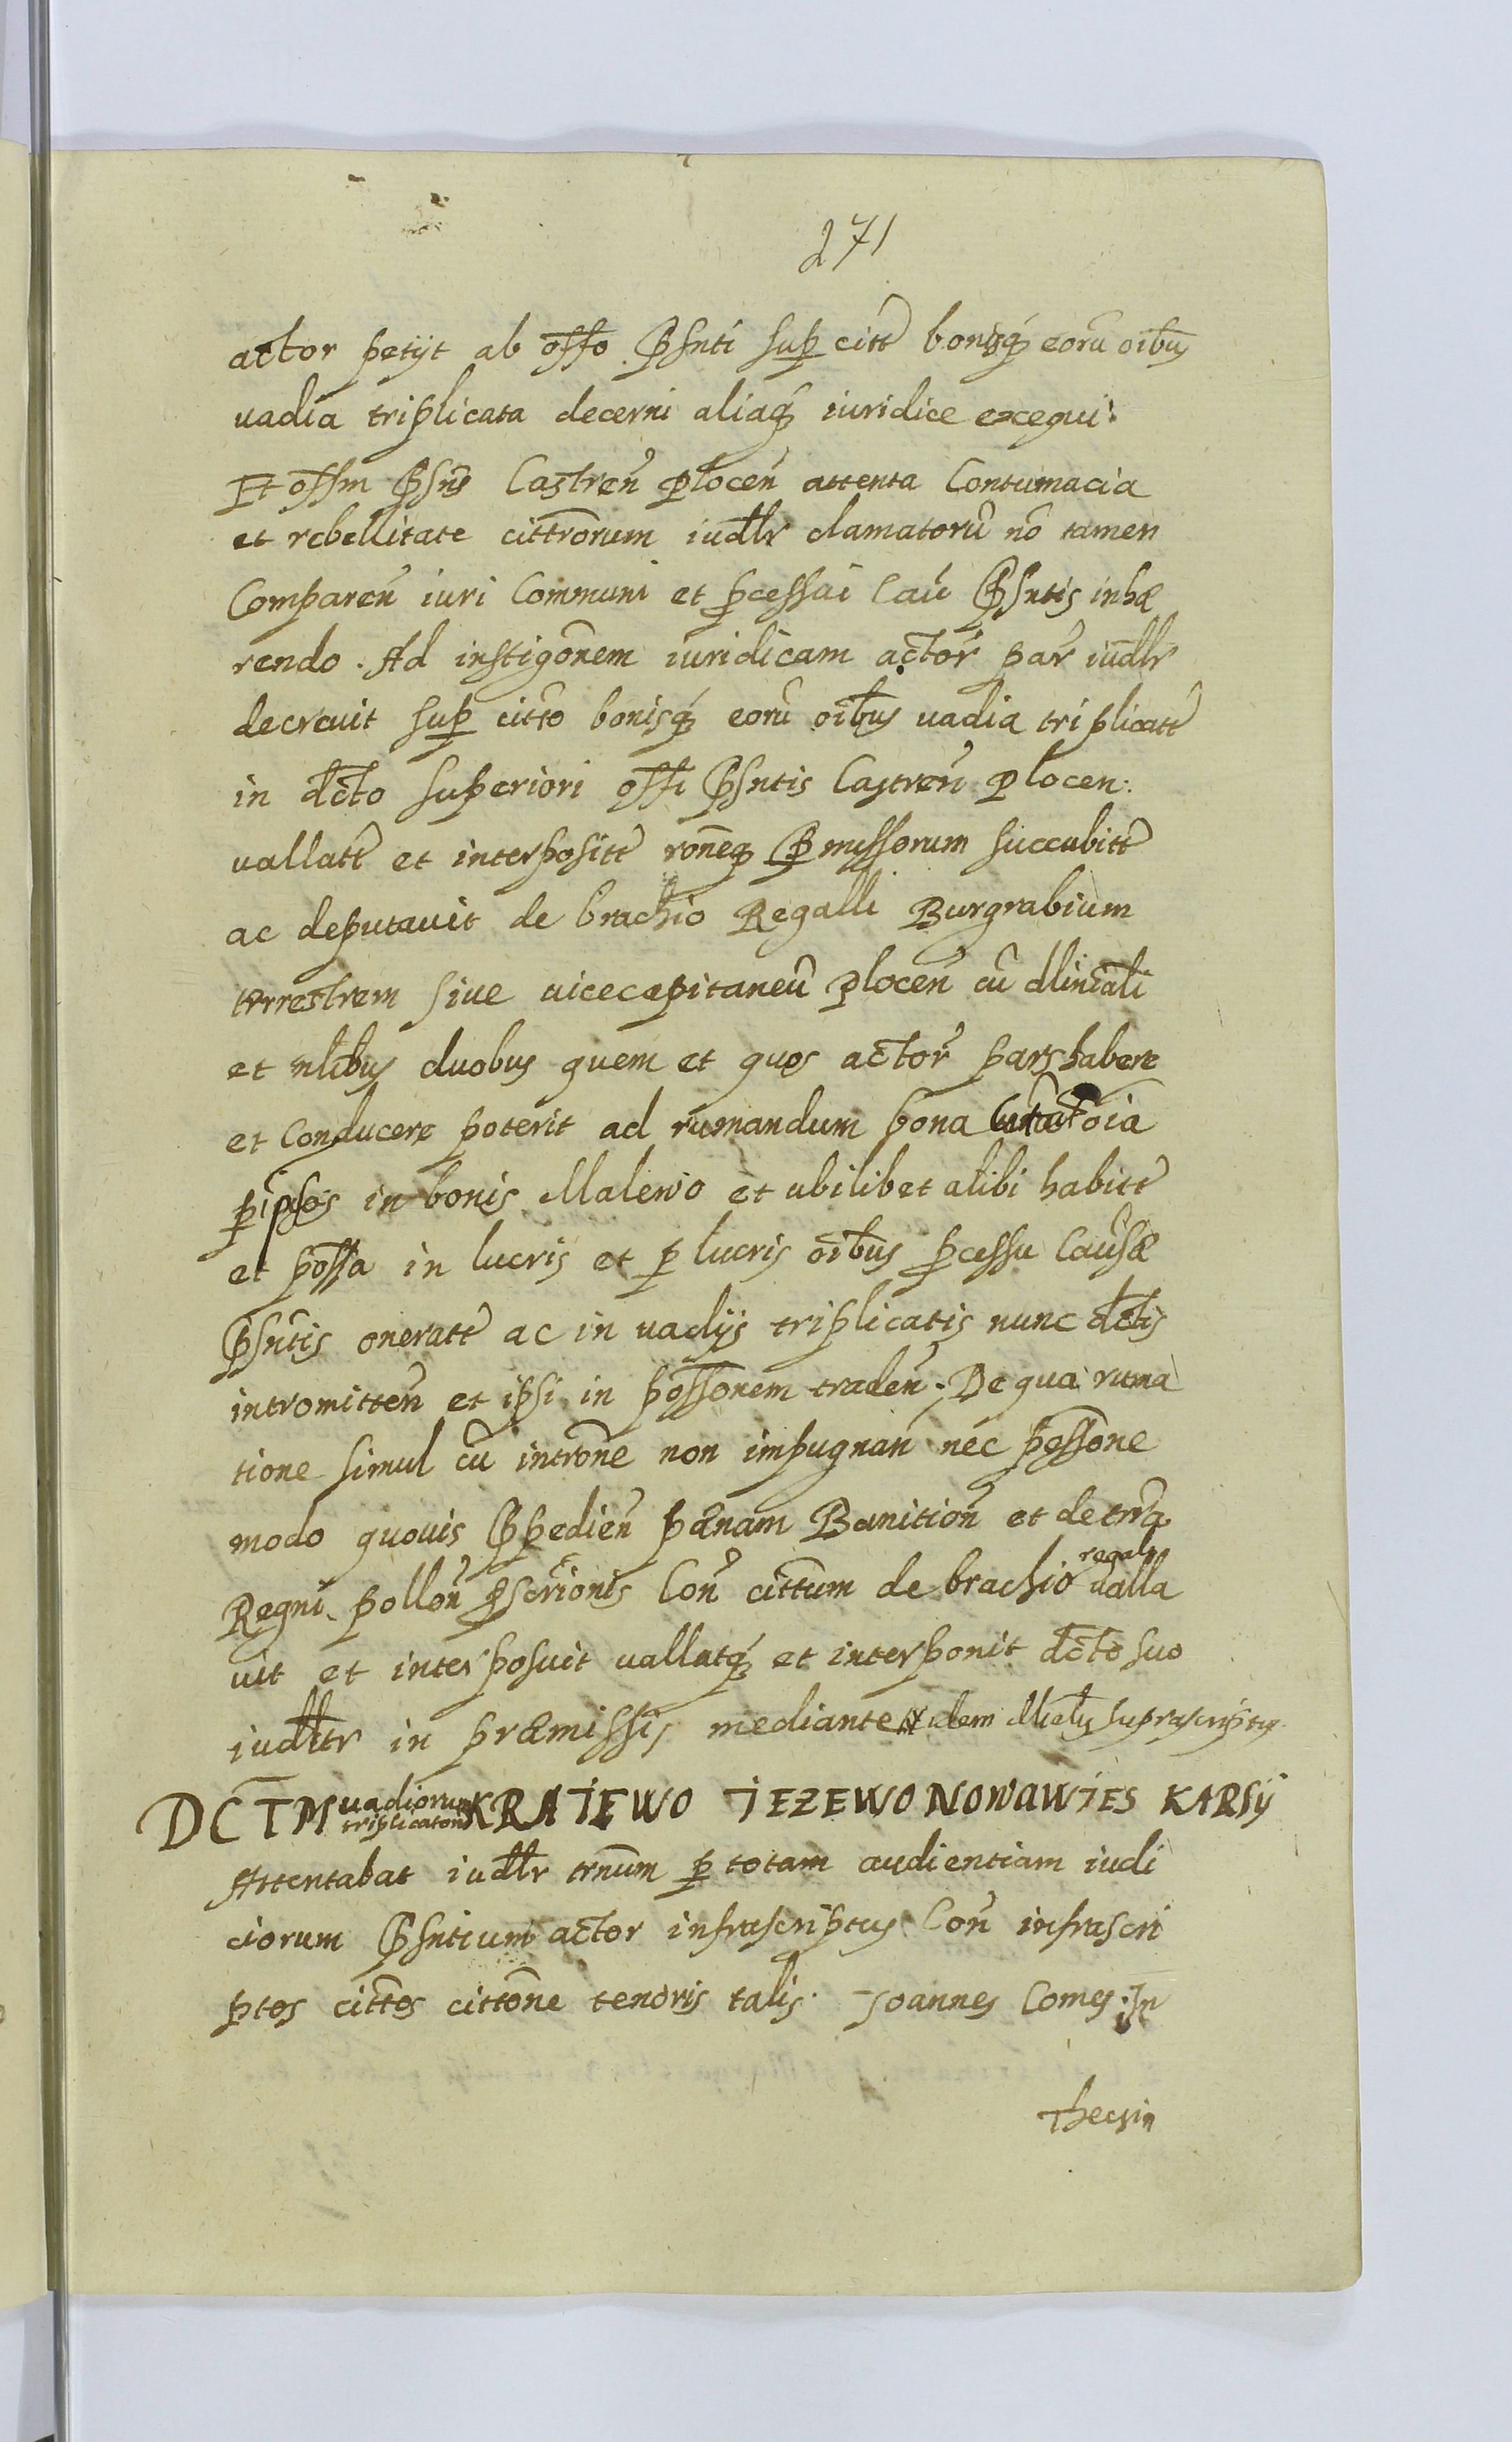 271
actor petyt ab offo Pñti sup citt bonisq eorũ oibus
vadia triplicata decerni aliaq iuridice exequi.
Et offm Pñs Castreñ Ploceñ attenta Contumacia
et rebellitate cittrorum iudlr clamatorũ nõ tamen
Compareñ iuri Communi et pcessui Cau Pñtis inhæ
rendo. Ad instigonem iuridicam actor par iudlr
decrevit sup citto bonisq eorũ oibus vadia triplicatt
in dcto superiori offi Pñtis Castreñ Plocen.
vallatt et interpositt roneq Pmissorum succubitt
ac deputavit de brachio Regalli Burgrabium
terrestrem sive vicecapitaneũ Ploceñ cũ
et nlibus duobus quem et quos actor pars habere
et Conducere poterit ad rumandum bona oia
p ipsos in bonis Malewo et ubilibet alibi habitt
et possa in lucris et p lucris oibus pcessu Causæ
Pñtis oneratt ac in vadijs triplicatis nunc dctis
intromitteñ et ipsi in possonem tradeñ. De qua ruma
tione simul cũ introne non impugnañ nec possone
modo quovis Ppedieñ pænam Banitioñ et de trra
Regni polloñ pscrionis Coñ cittum de brachio regali valla
vit et interposuit vallatq et interponit dcto suo
iudltr in præmissis mediante idem suprascriptus
DCTM vadiorum triplicatorũ KRAIEWO IEZEWO NOWAWIES KARSŸ
Attentabat iudlr trnum p totam audientiam iudi
ciorum Pñtium actor infrascriptus Coñ infrascri
ptos cittos cittone tenoris talis. Joannes Comes In
Thecsin